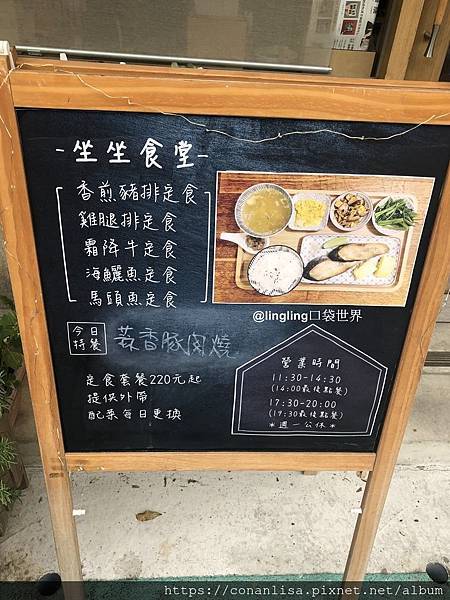 -坐坐食堂-
香煎豬排定食
雞腿排定食
霜降牛定食
海鱺魚定食
馬頭魚定食
@lingling口袋世界
今日特餐
蒜香豚肉燒
定食套餐220元起
提供外帶
配菜每日更換
營業時間
11:30-14:30
(14:00最後點餐)
17:30-20:00
(19:30最後點餐)
*週一公休*
https://conanlisa.pixnet.net/album